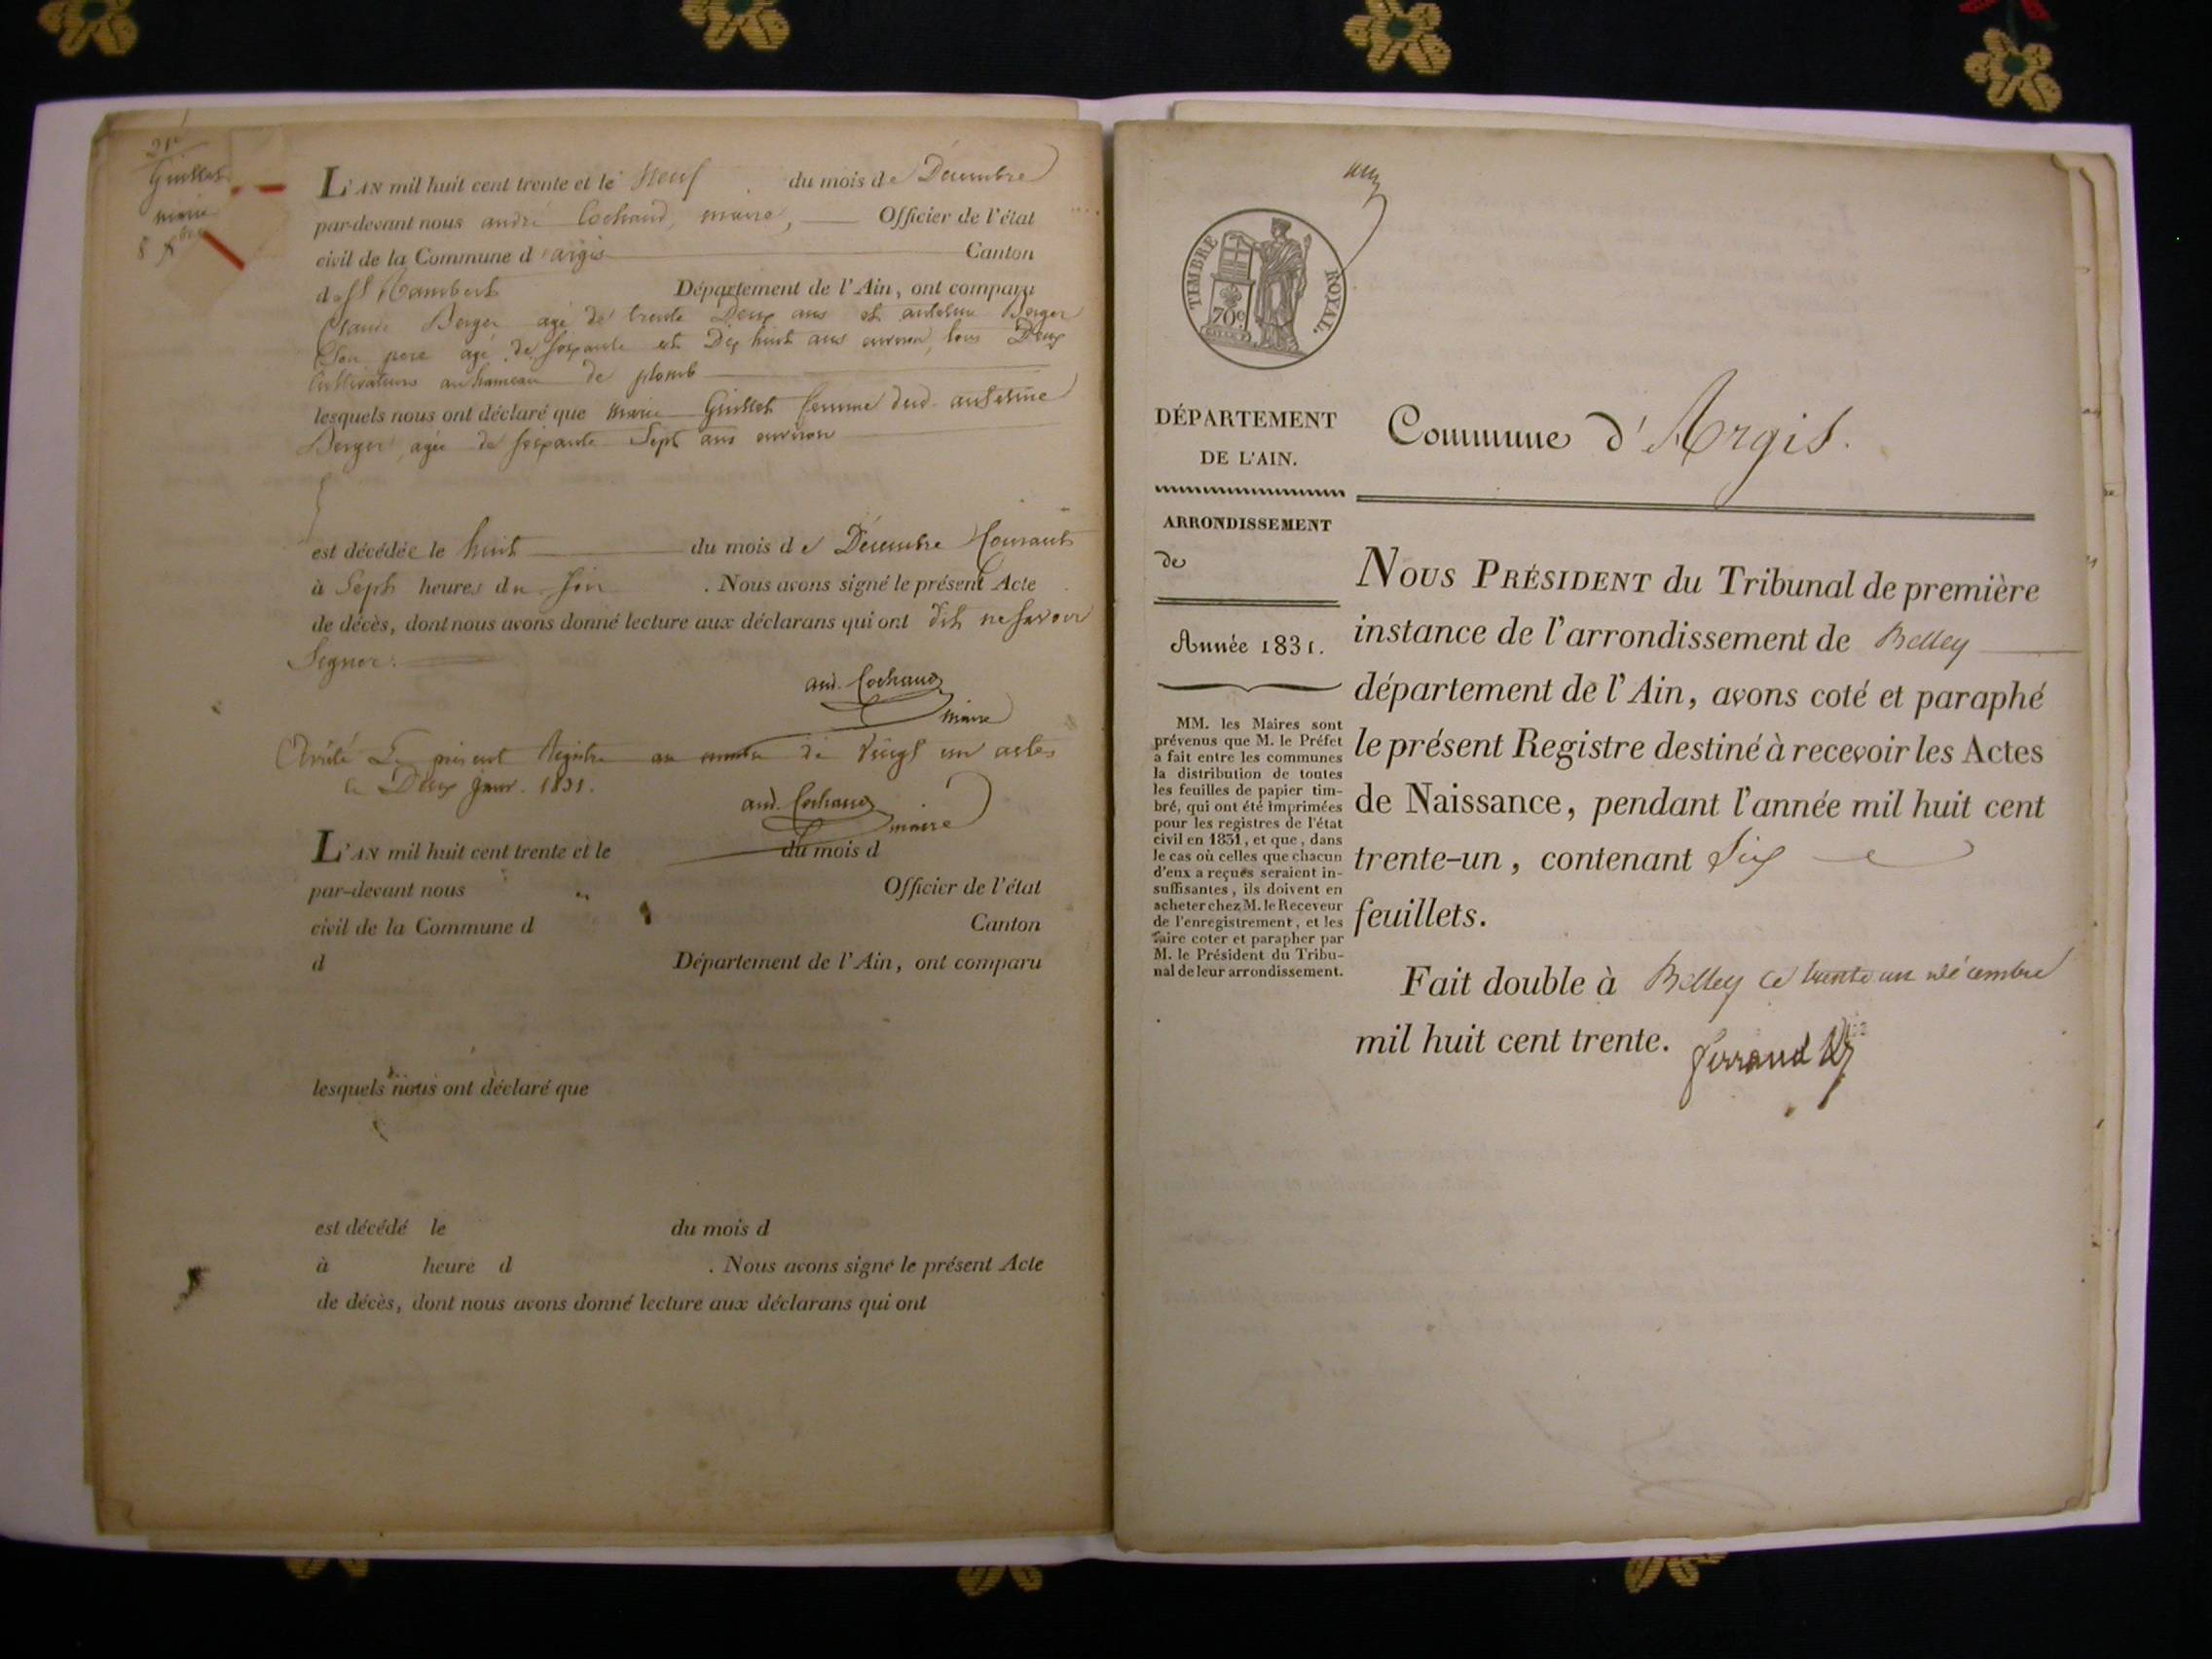 21e
Guillet
marie
8 Xbre
L'AN mil huit cent trente et le Neuf du mois de Décembre
par-devant nous andré Cochaud, maire, Officier de l'état
civil de la Commune d'argis Canton
de St Rambert Département de l'Ain, ont comparu
Claude Berger agé de trente Deux ans et antelme Berger
Son pere agé de soixante et Dix huit ans environ, tous Deux
Cultivateurs au hameau de plomb
lesquels nous ont déclaré que marie Guillet femme dud. antelme
Berger, agée de soixante Sept ans environ
est décédée le huit du mois de Décembre Courant
à Sept heures du soir . Nous avons signé le présent Acte
de décès, dont nous avons donné lecture aux déclarans qui ont dit ne savoir
Signer.
and. Cochaud
maire
Arrêté Le présent Registre au nombre de vingt un actes
le Deux janv. 1831.
and. Cochaud
maire
L'AN mil huit cent trente et le du mois d
par-devant nous Officier de l'état
civil de la Commune d Canton
d Département de l'Ain, ont comparu
lesquels nous ont déclaré que
est décédé le du mois d
à heure d . Nous avons signé le présent Acte
de décès, dont nous avons donné lecture aux déclarans qui ont
TIMBRE ROYAL.
70c
DÉPARTEMENT
DE L'AIN.
Commune d'Argis.
ARRONDISSEMENT
de
Année 1831.
MM. les Maires sont
prévenus que M. le Préfet
a fait entre les communes
la distribution de toutes
les feuilles de papier tim-
bré, qui ont été imprimées
pour les registres de l'état
civil en 1831, et que, dans
le cas où celles que chacun
d'eux a reçues seraient in-
suffisantes, ils doivent en
acheter chez M. le Receveur
de l'enregistrement, et les
faire coter et parapher par
M. le Président du Tribu-
nal de leur arrondissement.
NOUS PRÉSIDENT du Tribunal de première
instance de l'arrondissement de Belley
département de l'Ain, avons coté et paraphé
le présent Registre destiné à recevoir les Actes
de Naissance, pendant l'année mil huit cent
trente-un, contenant Six
feuillets.
Fait double à Belley ce trente un décembre
mil huit cent trente.
ferrand